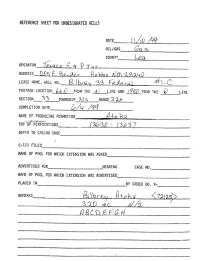 REFERENCE SHEET FOR UNDESIGNATED WELLS
DATE 11/10/99
OIL/GAS Gas
COUNTY Lea
OPERATOR Texaco E & P Inc
ADDRESS 205 E. Bender Hobbs NM 88240
LEASE NAME, WELL NO. Bilbrey 33 Federal #1-C
FOOTAGE LOCATION 660 FROM THE N LINE AND 1980 FROM THE W LINE
SECTION 33 TOWNSHIP 21S RANGE 32E
COMPLETION DATE 6/4/99
NAME OF PRODUCING FORMATION Atoka
TOP OF PERFORATIONS 13630 - 13637
DEPTH TO CASING SHOE
C-123 FILED
NAME OF POOL FOR WHICH EXTENSION WAS ASKED
NAME OF POOL FOR WHICH EXTENSION WAS ASKED
ADVERTISED FOR HEARING CASE NO.
NAME OF POOL FOR WHICH ADVERTISED
PLACED IN BY ORDER NO. R-
REMARKS Bilbrey Atoka <72125>
320 ac N/2
ABCDEFGH